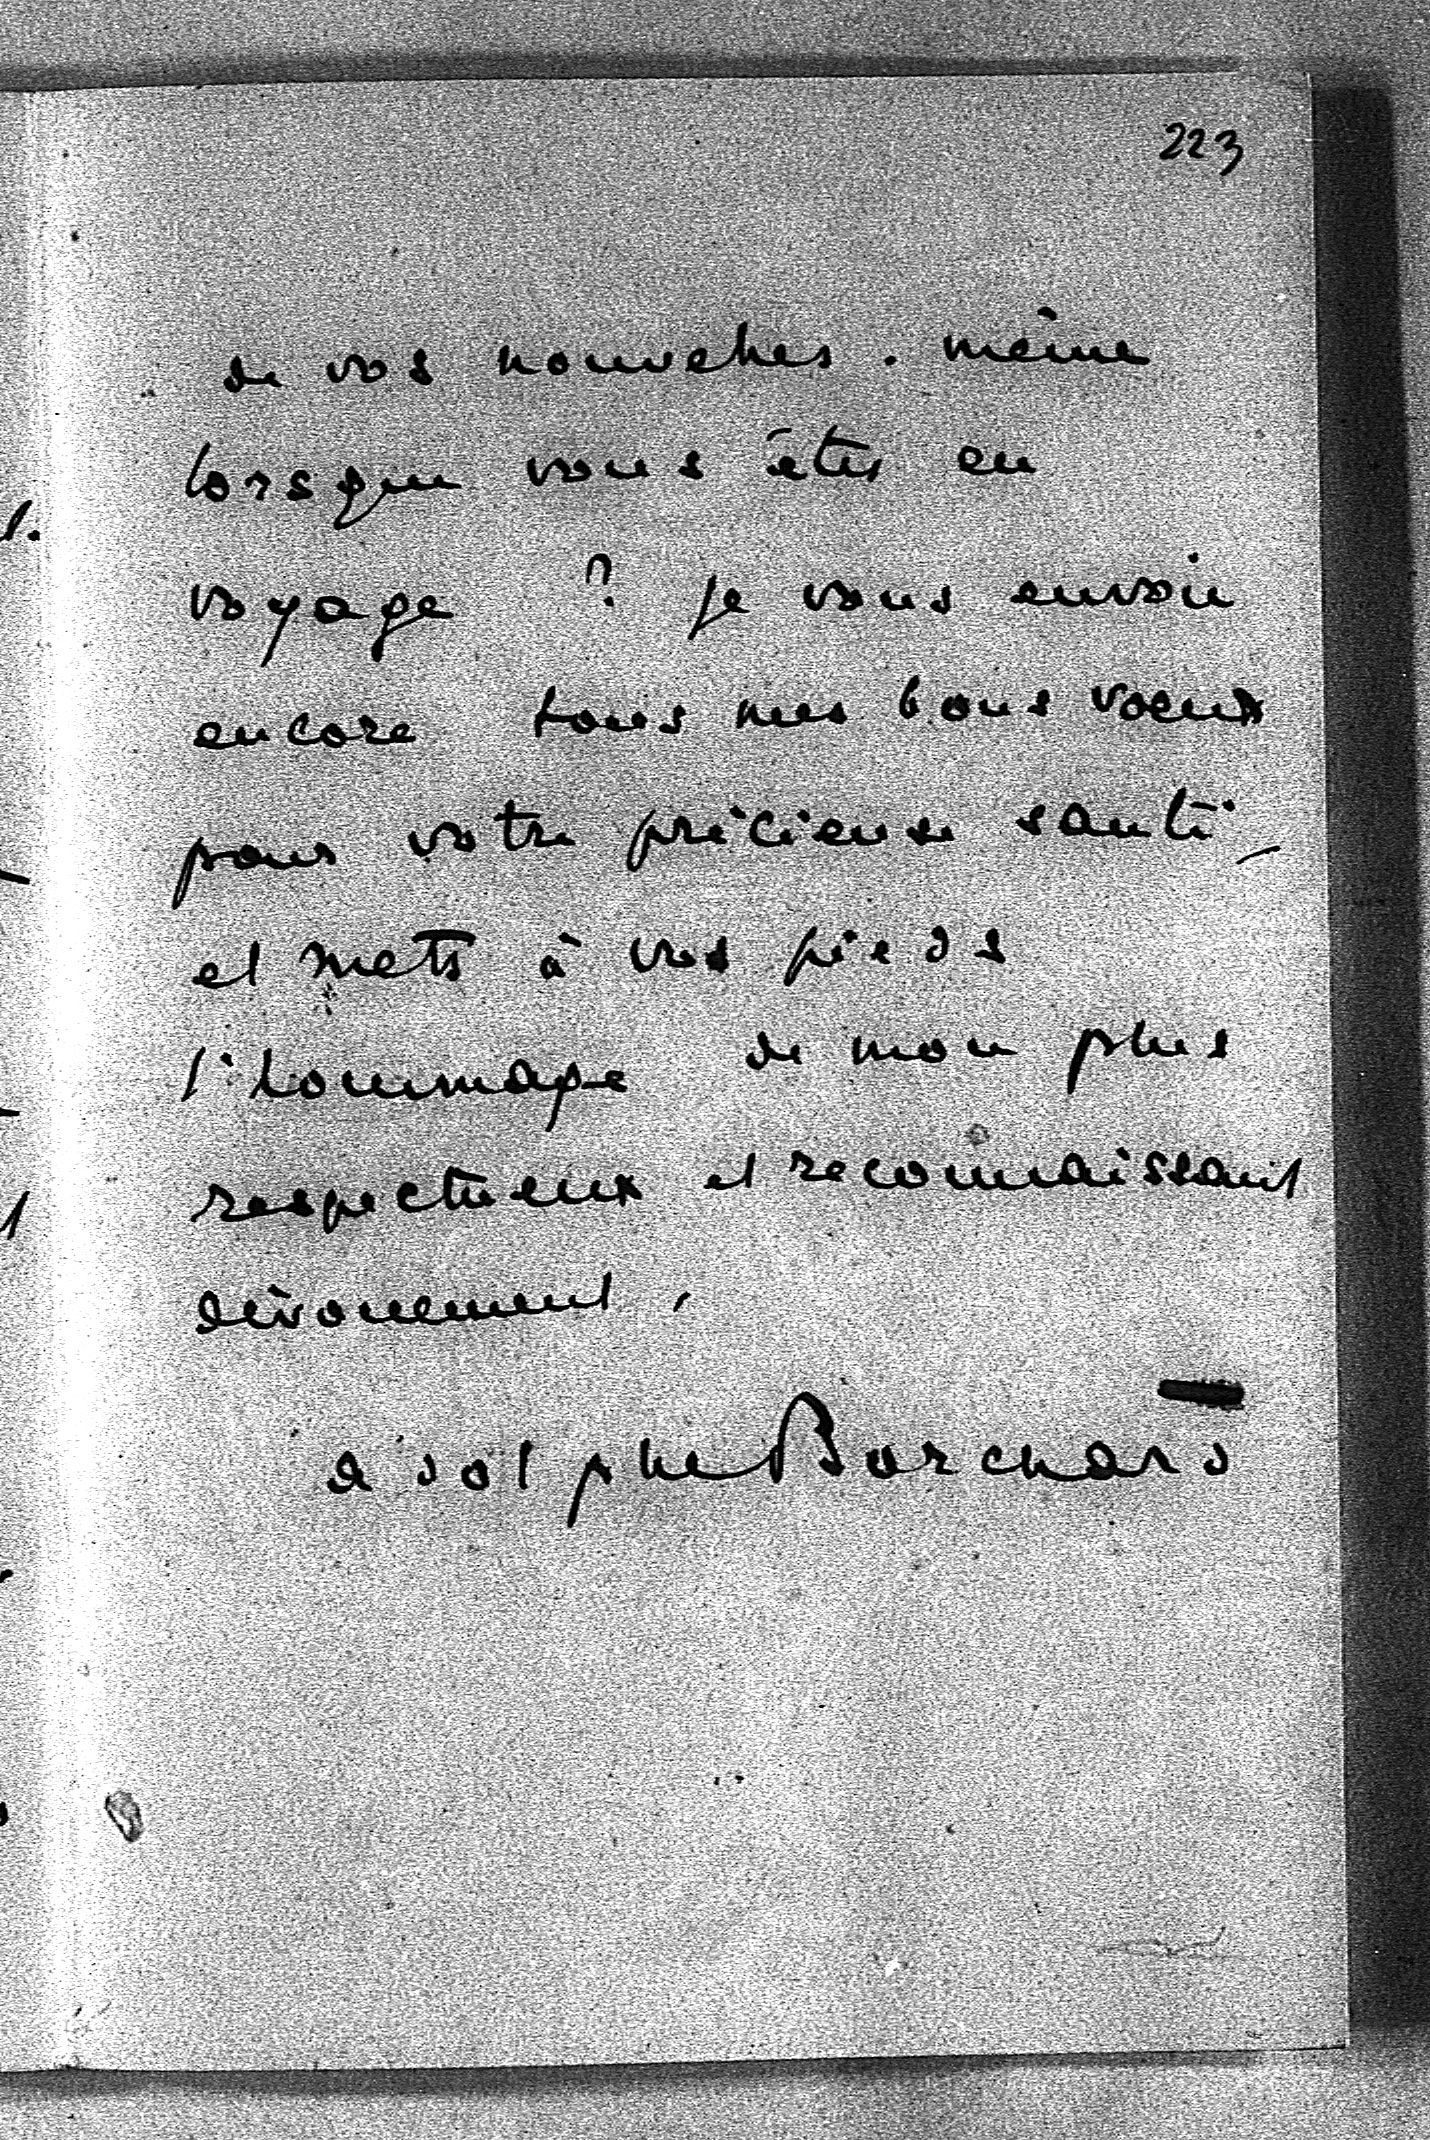 223
de vos nouvelles. même
lorsque vous êtes en
voyage ? je vous envoie
encore tous mes bons voeux
pour votre précieuse santé
et mets à vos pieds
l'hommage de mon plus
respectueux et reconnaissant
dévouement.
adolphe Borchard